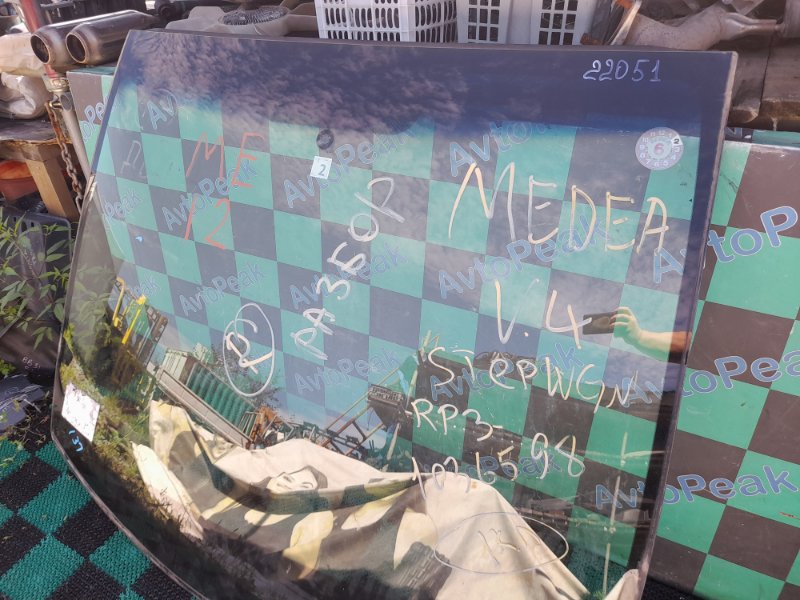 22051
6
2
2
ME
12
РАЗБОР
MEDEA
V.4
STEPWGN
RP3-
1036598
P
AvtoPeak
AvtoPeak
AvtoPeak
AvtoPeak
AvtoPeak
AvtoPeak
AvtoPeak
AvtoPeak
AvtoPeak